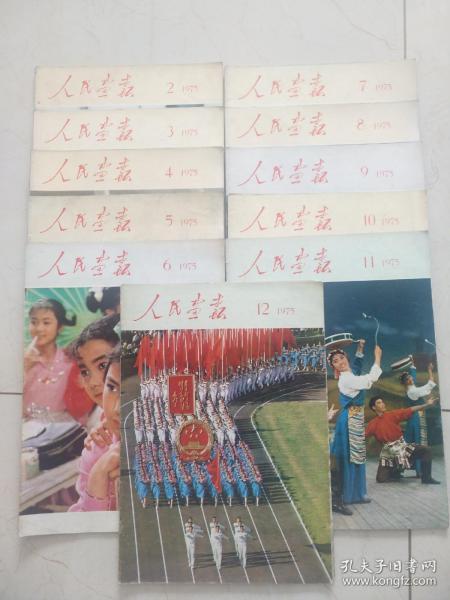 人民画报 2 1975
人民画报 3 1975
人民画报 4 1975
人民画报 5 1975
人民画报 6 1975
人民画报 7 1975
人民画报 8 1975
人民画报 9 1975
人民画报 10 1975
人民画报 11 1975
人民画报 12 1975
孔夫子旧书网
www.kongfz.com